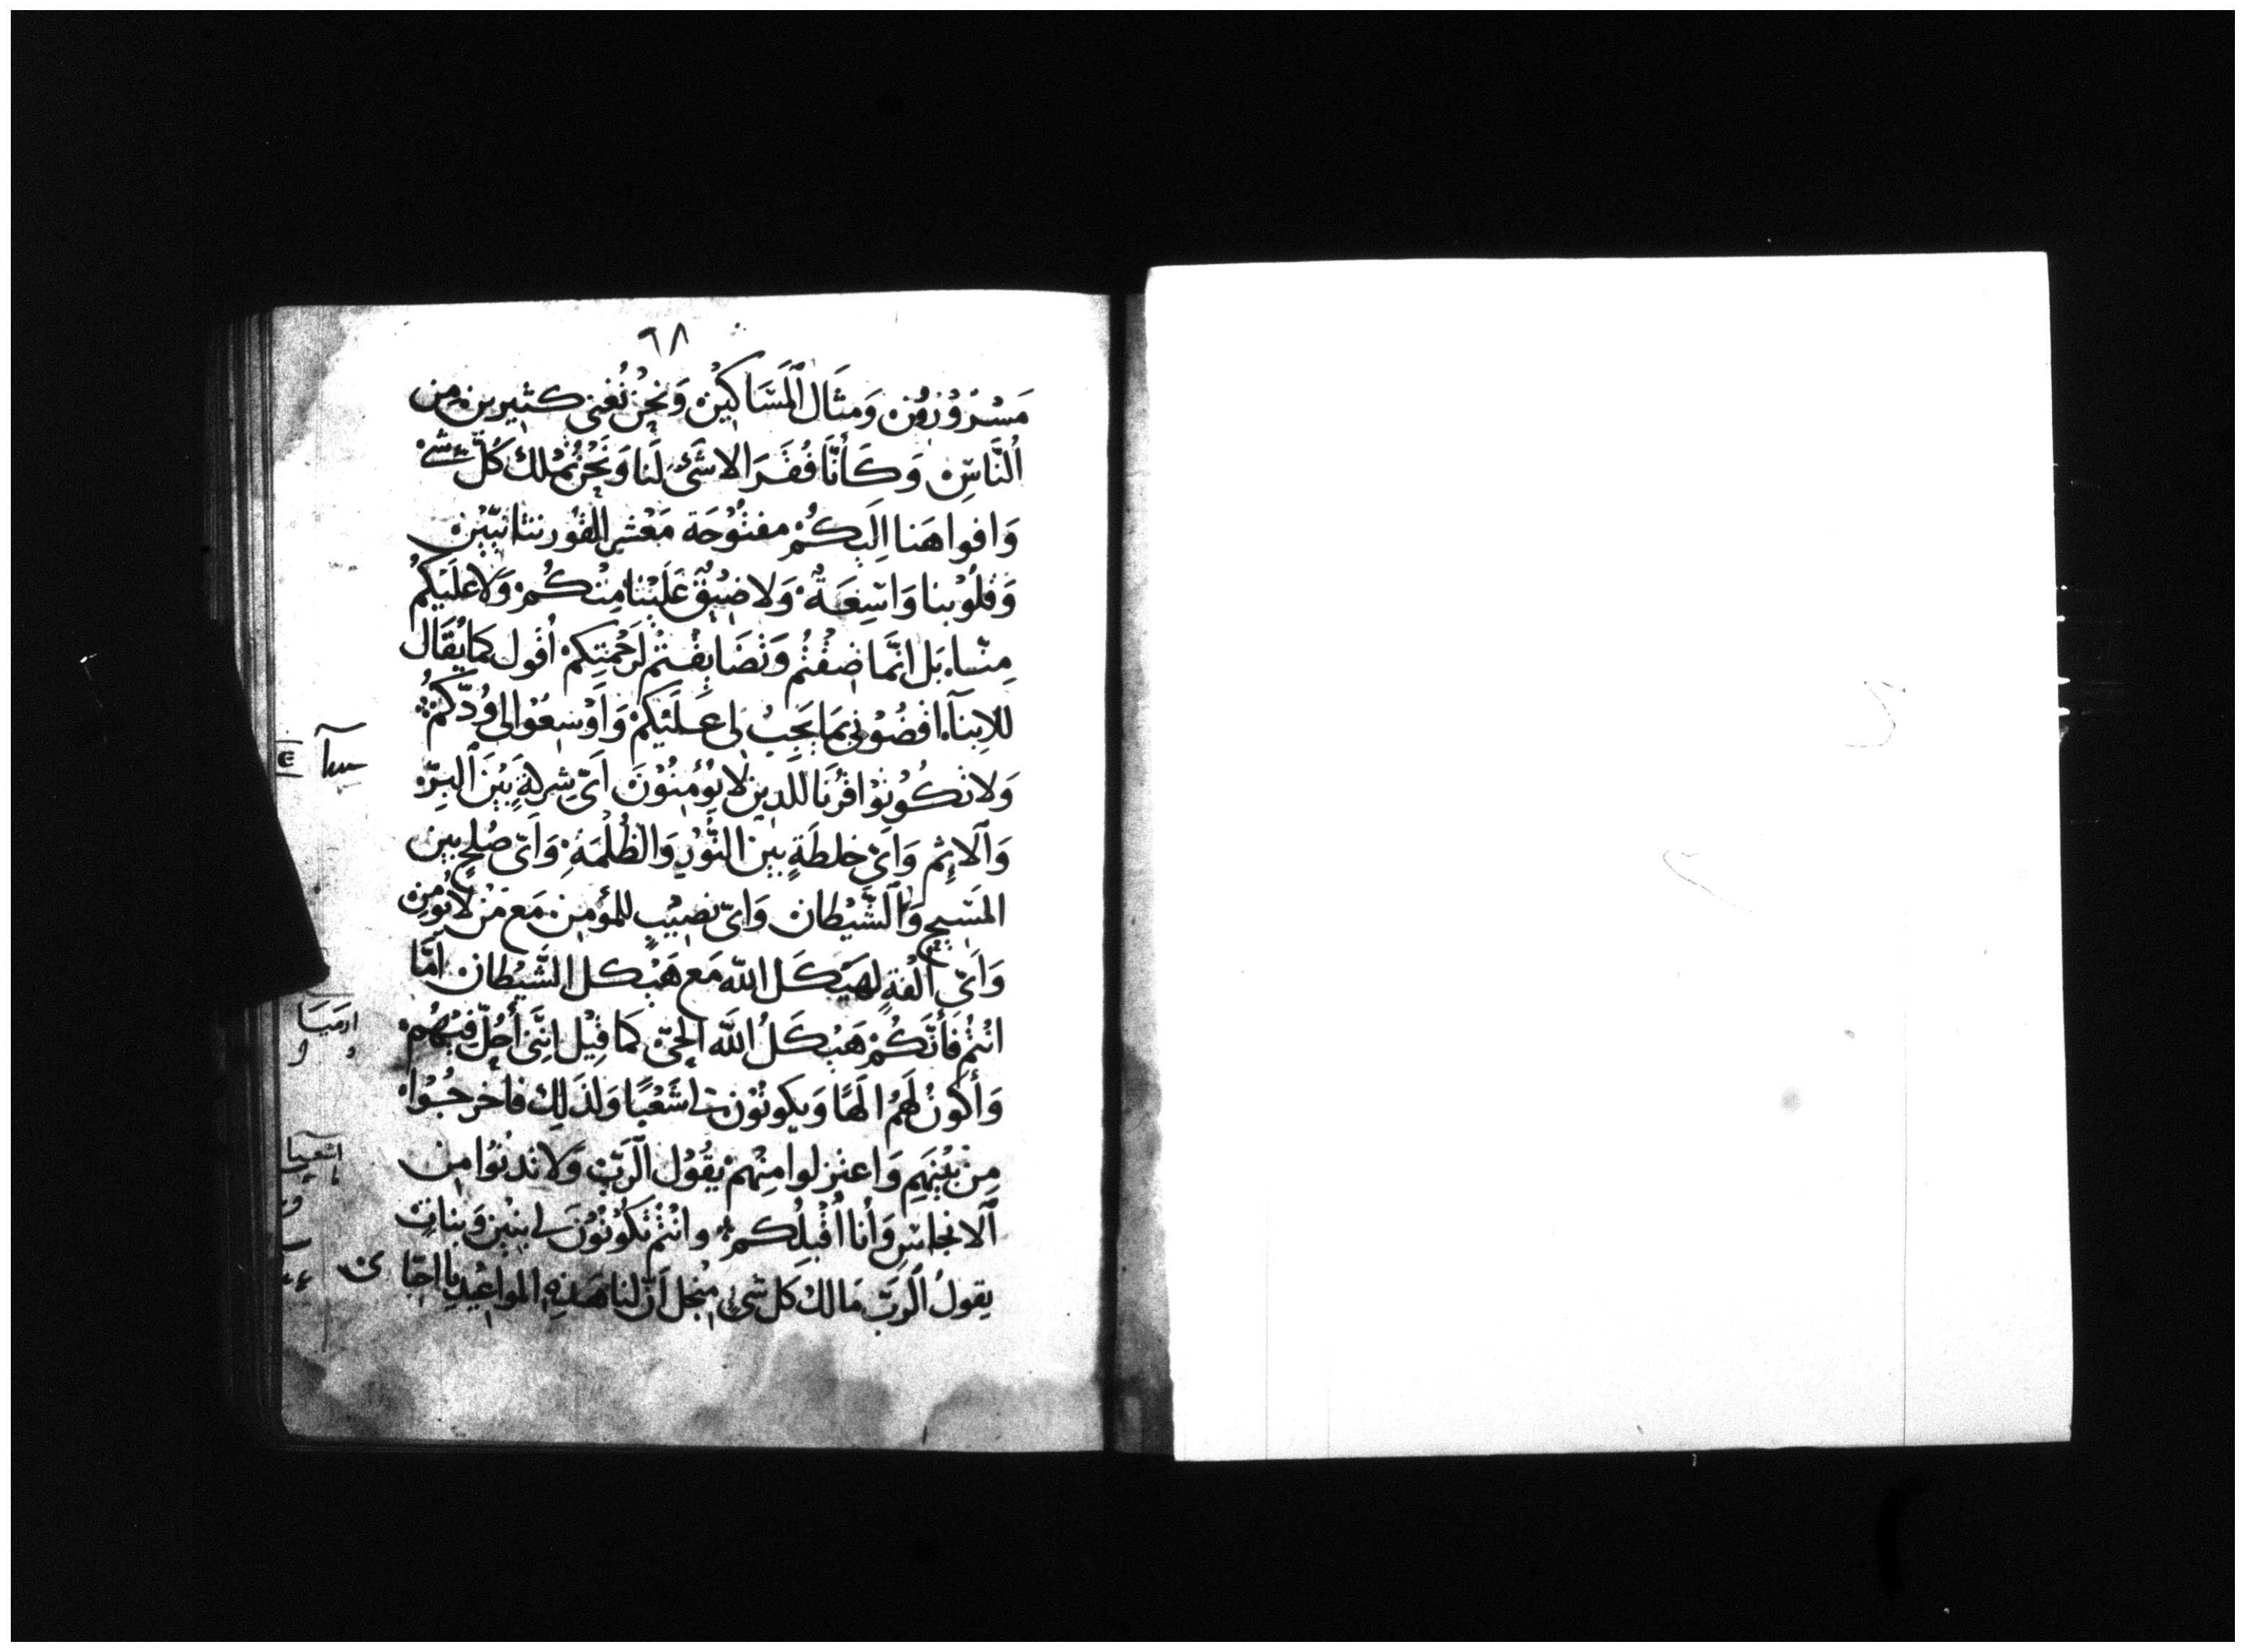 ٦٨
مَسْرُوْرُوْن وَمثَال اَلمَسَاكيْن وَنحْنُ نُغني كثيرين من
اُلنَّاسِ وَكَأنَّا فُقَرَا لا شَىْ لَنا وَنَحْنُ نمْلك كُلّ شَىْ
وَافواهَنا اِلَيكُمْ مفتُوْحَة مَعْشر القُورنتانيّيْن
وَقلُوْبنا وَاسِعَةٌ وَلا ضيْق عَلَيْنا مِنْكُمْ وَلا علَيْكُمُ
مِنّا بَل انَّما ضقْتُم وَتَضَايقْتمْ لرَحْمتِكمْ اُقول كمَا يُقَال
للابنآء اقضُوْنى بمَا يَجِبُ لى عَلَيْكمْ وَاَوْسِعُوْا لى وُدَّكُمْ
سآ
وَلا تكُونُوْا قرُنَا للذين لا يُؤمِنُوْنَ اَىّ شِركةٍ بَيْنَ اَلبِرّ
وَاَلاثِم وَاَىّ خلطَةٍ بين النُّوْر وَالظُلْمَة وَاَىّ صُلح بين
المَسَيح وَاَلشَّيْطان وَاىّ نصيْبٍ للمؤمن مَع مَنْ لا يُؤمن
وَاَىّ اُلْفةٍ لهَيْكَل الله مَع هَيْكل الشَّيْطان امَّا
انْتُم فَأنَّكُمْ هَيْكَلُ الله الحَىّ كمَا قيْل انَّنى أحُلّ فيْهُم
ارميَا
وَأكونُ لَهمُ الَهًا وَيكونوْن لى شَعْبًا وَلذَلِكَ فاخرجُوْا
مِنْ بَيْنِهَمِ وَاعتزلوا مِنْهمْ يقُوْل اَلرَبّ وَلا تدنُوا من
اشعيا
اَلانجاسِ وَأنا اُقْبلِكُم وانْتُم تكُونُوْنَ لى بنيْن وَبناتٍ
يقولُ اَلرَبّ مَالك كل شىٍ منجل اَنّ لنا هَذِه المواعيْد يا احبّا ى